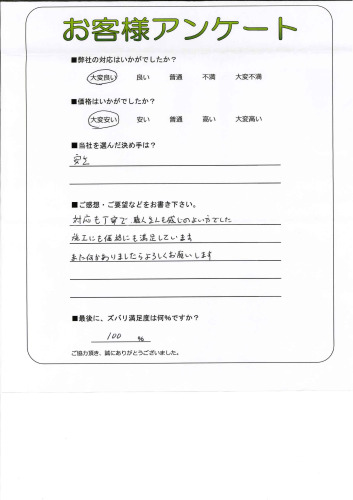 お客様アンケート
■弊社の対応はいかがでしたか?
大変良い 良い 普通 不満 大変不満
■価格はいかがでしたか?
大変安い 安い 普通 高い 大変高い
■当社を選んだ決め手は?
■ご感想・ご要望などをお書き下さい。
対応も丁寧で、職人さんも感じのよい方でした
施工にも価格にも満足しています
また何かありましたらよろしくお願いします
■最後に、ズバリ満足度は何%ですか?
100 %
ご協力頂き、誠にありがとうございました。